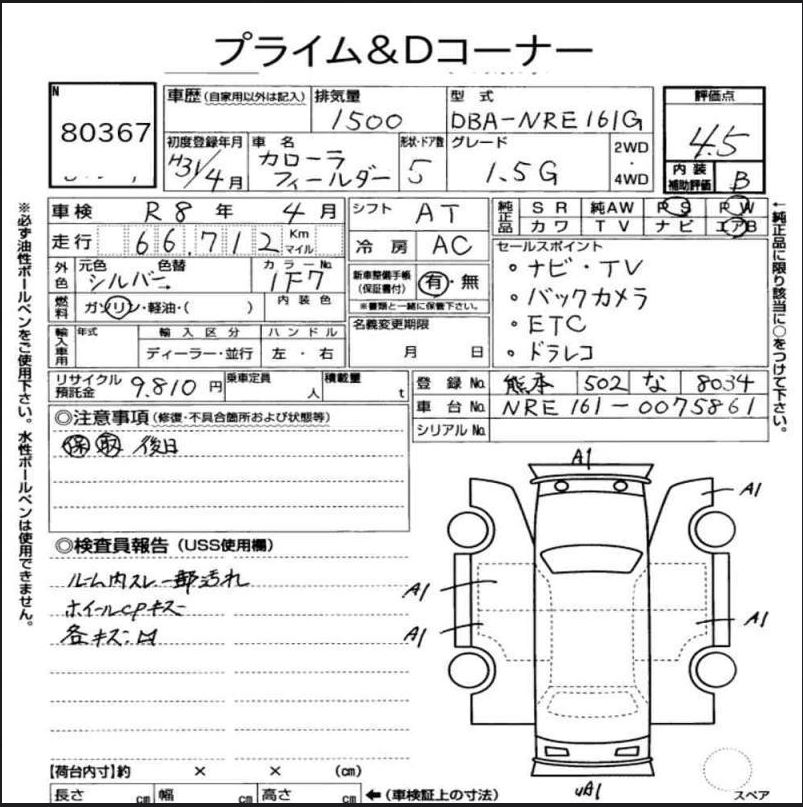 プライム&Dコーナー
N
80367
車歴 (自家用以外は記入)
排気量
1500
型式
DBA-NRE161G
評価点
4.5
初度登録年月
H31/4月
車名
カローラ
フィールダー
形状・ドア数
5
グレード
1.5G
2WD
・
4WD
内装
補助評価
B
車検 R8年 4月
シフト AT
純正品
SR 純AW PS PW
カワ TV ナビ エアB
走行 66,712 Km マイル
冷房 AC
セールスポイント
・ナビ・TV
・バックカメラ
・ETC
・ドラレコ
外色 元色 色替
シルバー
カラーNo.
1F7
新車整備手帳
(保証書付)
有・無
※書類と一緒に保管下さい。
燃料 ガソリン・軽油・( )
内装色
名義変更期限
月 日
輸入車用 年式
輸入区分
ディーラー・並行
ハンドル
左・右
リサイクル
預託金
9.810円
乗車定員
人
積載量
t
登録No. 熊本 502 な 8034
車台No. NRE161-0075861
シリアルNo.
◎注意事項 (修復・不具合箇所および状態等)
保 取 後日
◎検査員報告 (USS使用欄)
ルーム内スレ 一部汚れ
ホイールcpキズ
各キズ凹
A1
A1
A1
A1
A1
A1
スペア
【荷台内寸】約 × × (cm)
長さ cm 幅 cm 高さ cm ←(車検証上の寸法)
※必ず油性ボールペンをご使用下さい。水性ボールペンは使用できません。
←純正品に限り該当に○をつけて下さい。